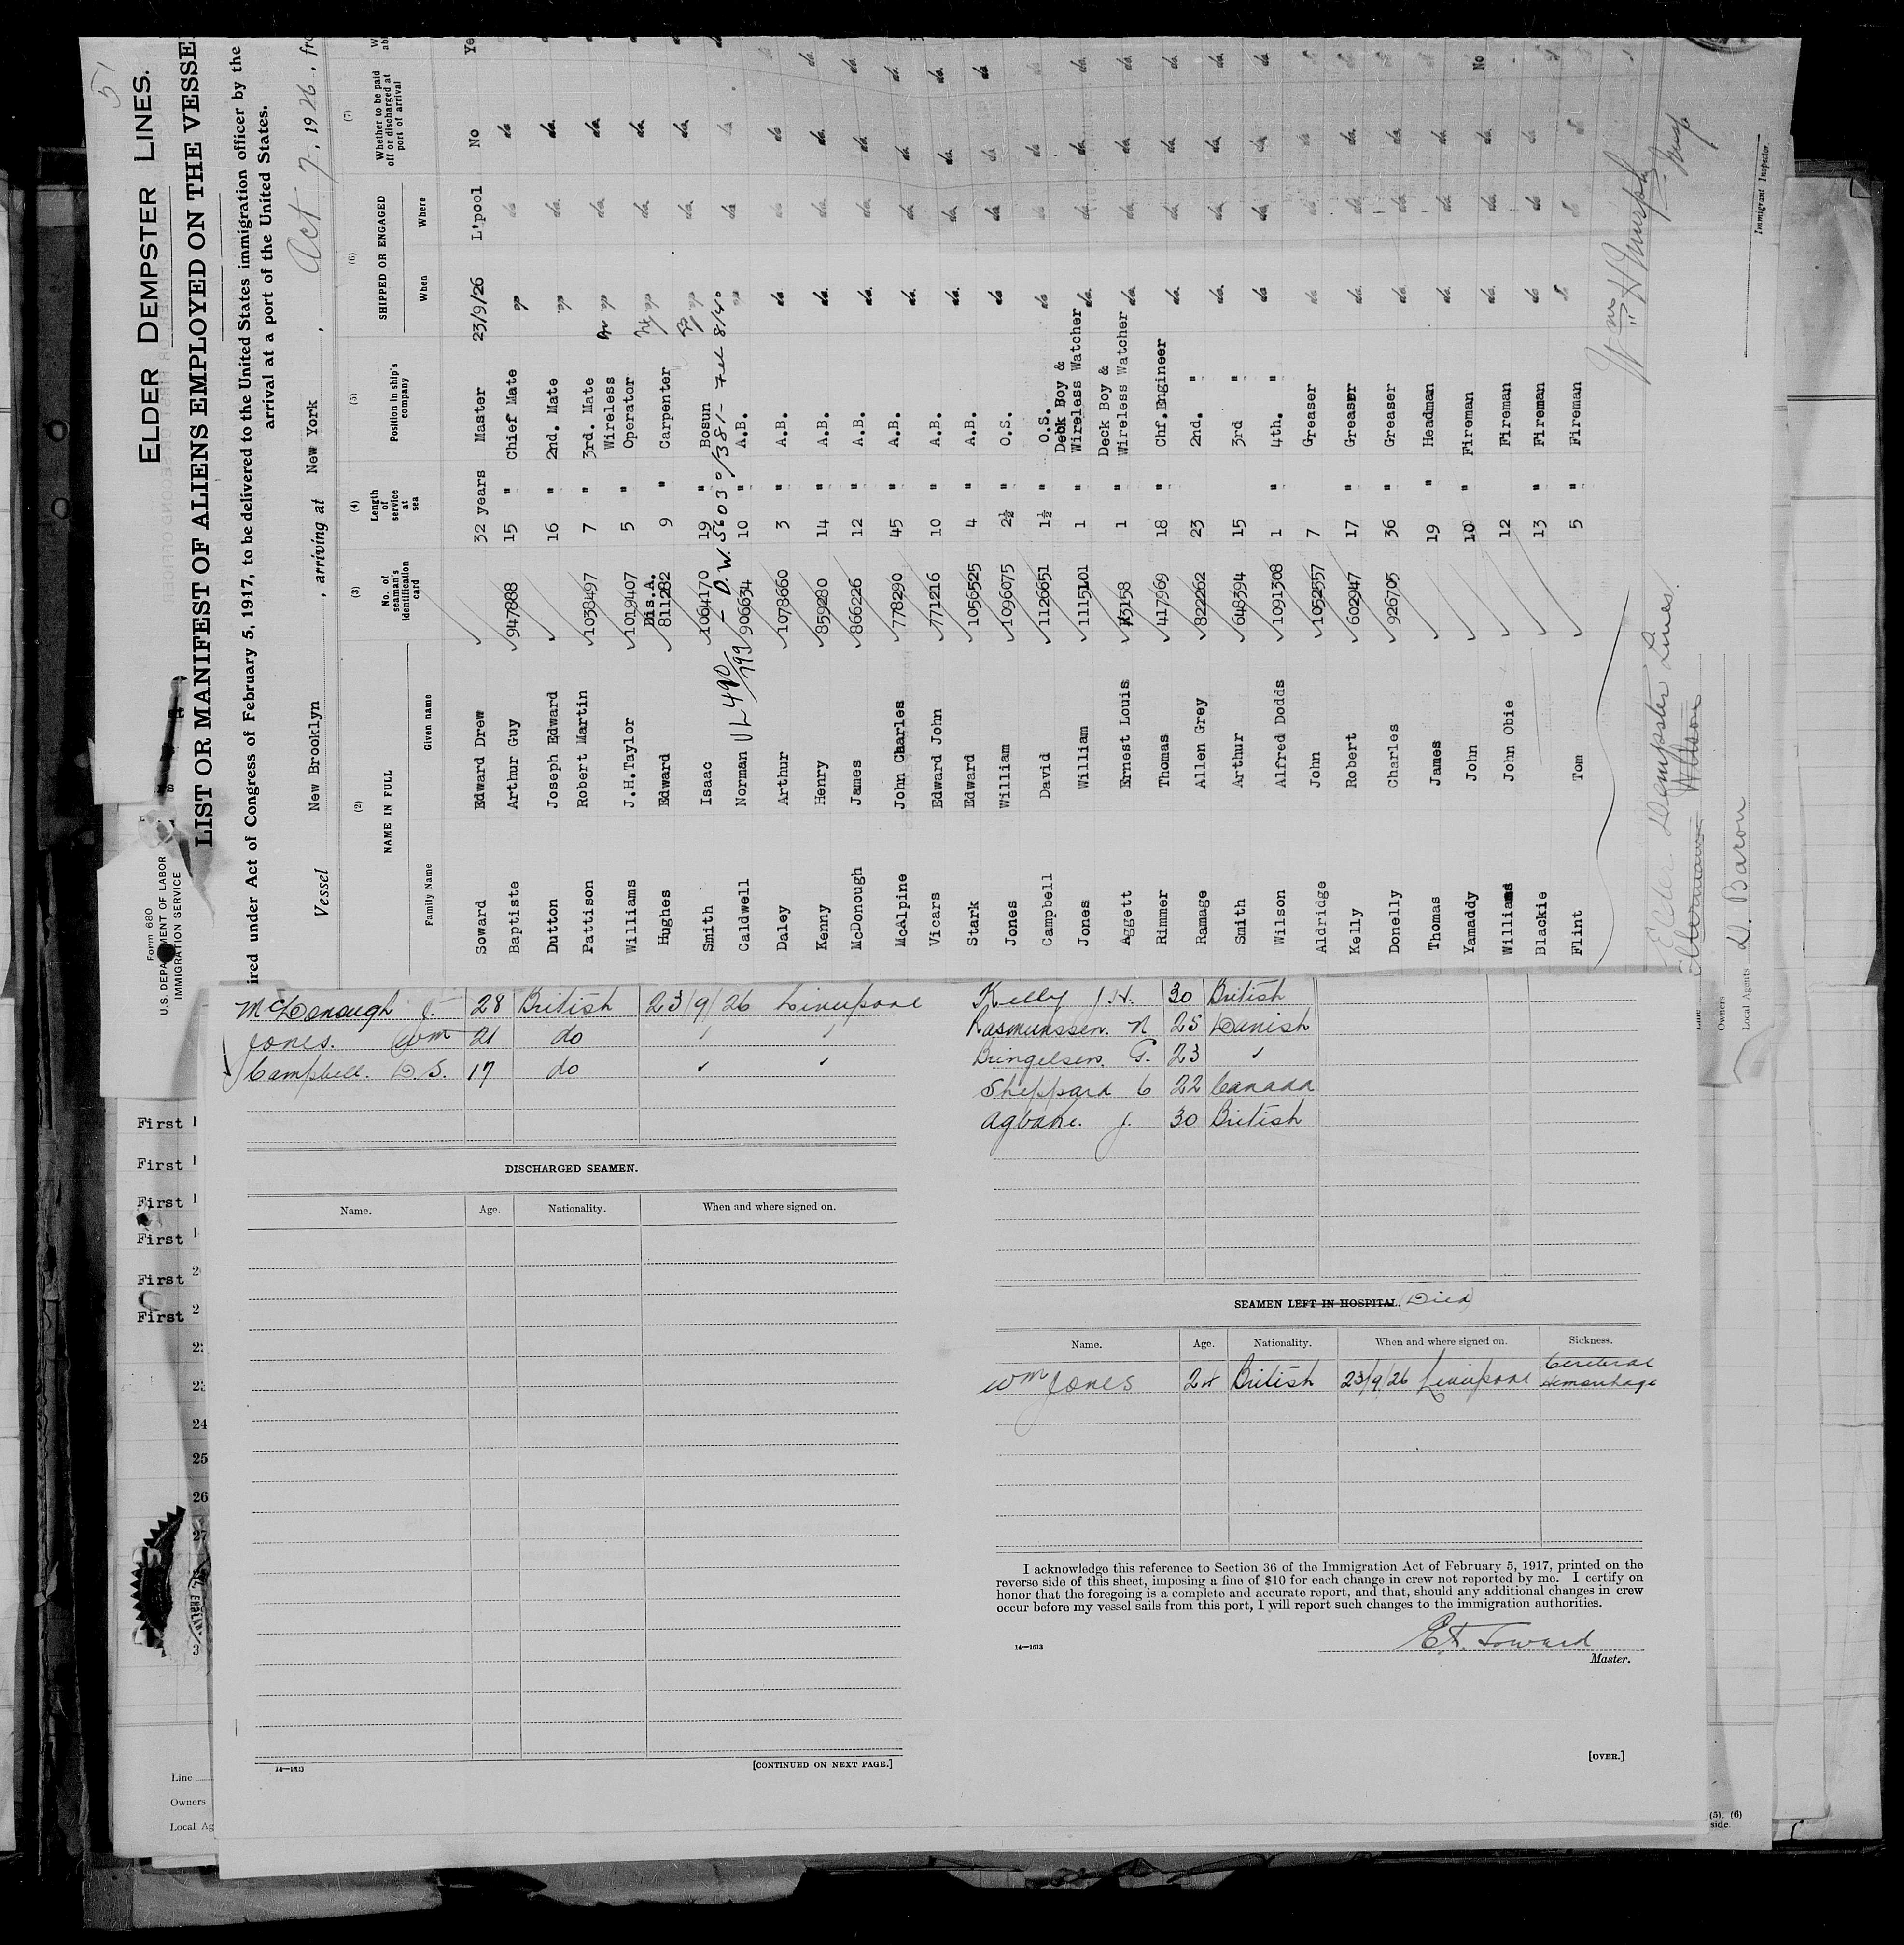 51
ELDER DEMPSTER LINES.
Form 680
U.S. DEPARTMENT OF LABOR
IMMIGRATION SERVICE
LIST OR MANIFEST OF ALIENS EMPLOYED ON THE VESSE
ired under Act of Congress of February 5, 1917, to be delivered to the United States immigration officer by the
arrival at a port of the United States.
Vessel New Brooklyn , arriving at New York , Oct 7, 1926, fro
(2) (3) (4) (5) (6) (7)
NAME IN FULL No. of seaman's identification card Length of service at sea Position in ship's company SHIPPED OR ENGAGED Whether to be paid off or discharged at port of arrival
Family Name Given name When Where
Soward Edward Drew 32 years Master 23/9/26 L'pool No Ye
Baptiste Arthur Guy 947888 15 " Chief Mate do do do
Dutton Joseph Edward 16 " 2nd. Mate do do do
Pattison Robert Martin 1038497 7 " 3rd. Mate do do do
Williams J.H.Taylor 1019407 5 " Wireless Operator do do do
Hughes Edward Dis.A. 811282 9 " Carpenter do do do
Smith Isaac 1004170 19 " Bosun do do do
Caldwell Norman 906634 10 " A.B. do do do
Daley Arthur 1078660 3 " A.B. do do do
Kenny Henry 859280 14 " A.B. do do do
McDonough James 866226 12 " A.B. do do do
McAlpine John Charles 778290 45 " A.B. do do do
Vicars Edward John 771216 10 " A.B. do do do
Stark Edward 1056525 4 " A.B. do do do
Jones William 1096075 2½ " O.S. do do do
Campbell David 1126651 1½ " O.S. do do do
Jones William 1115101 1 " Deck Boy & Wireless Watcher do do do
Aggett Ernest Louis K3158 1 " Deck Boy & Wireless Watcher do do do
Rimmer Thomas 417969 18 " Chf.Engineer do do do
Ramage Allen Grey 822262 23 2nd. " do do do
Smith Arthur 648394 15 3rd " do do do
Wilson Alfred Dodds 1091308 1 " 4th. " do do do
Aldridge John 1052557 7 Greaser do do do
Kelly Robert 602947 17 " Greaser do do do
Donelly Charles 926705 36 " Greaser do do do
Thomas James 19 " Headman do do do
Yamaddy John 10 " Fireman do do do No
Williams John Obie 12 Fireman do do do
Blackie 13 " Fireman do do do
Flint Tom 5 " Fireman do do do
Wm H Murphy
Immigrant Inspector.
Line Elder Dempster Lines.
Owners
Local Agents D. Bacon
McDonough J. 28 British 23/9/26 Liverpool
Jones. Wm 21 do " "
Campbell. D.S. 17 do " "
DISCHARGED SEAMEN.
Name. Age. Nationality. When and where signed on.
14—1613
[CONTINUED ON NEXT PAGE.]
Kelly J.H. 30 British
Rasmunssen. N 25 Danish
G. 23 "
Sheppard C 22 Canada
J. 30 British
SEAMEN LEFT IN HOSPITAL. Died
Name. Age. Nationality. When and where signed on. Sickness.
Wm Jones British 23/9/26 Liverpool Cerebral Hemorrhage
I acknowledge this reference to Section 36 of the Immigration Act of February 5, 1917, printed on the
reverse side of this sheet, imposing a fine of $10 for each change in crew not reported by me. I certify on
honor that the foregoing is a complete and accurate report, and that, should any additional changes in crew
occur before my vessel sails from this port, I will report such changes to the immigration authorities.
14—1613
E.D. Soward
Master.
[OVER.]
First
First
First
First
First
First
24
25
26
27
Line
Owners
Local Ag
(5), (6)
side.